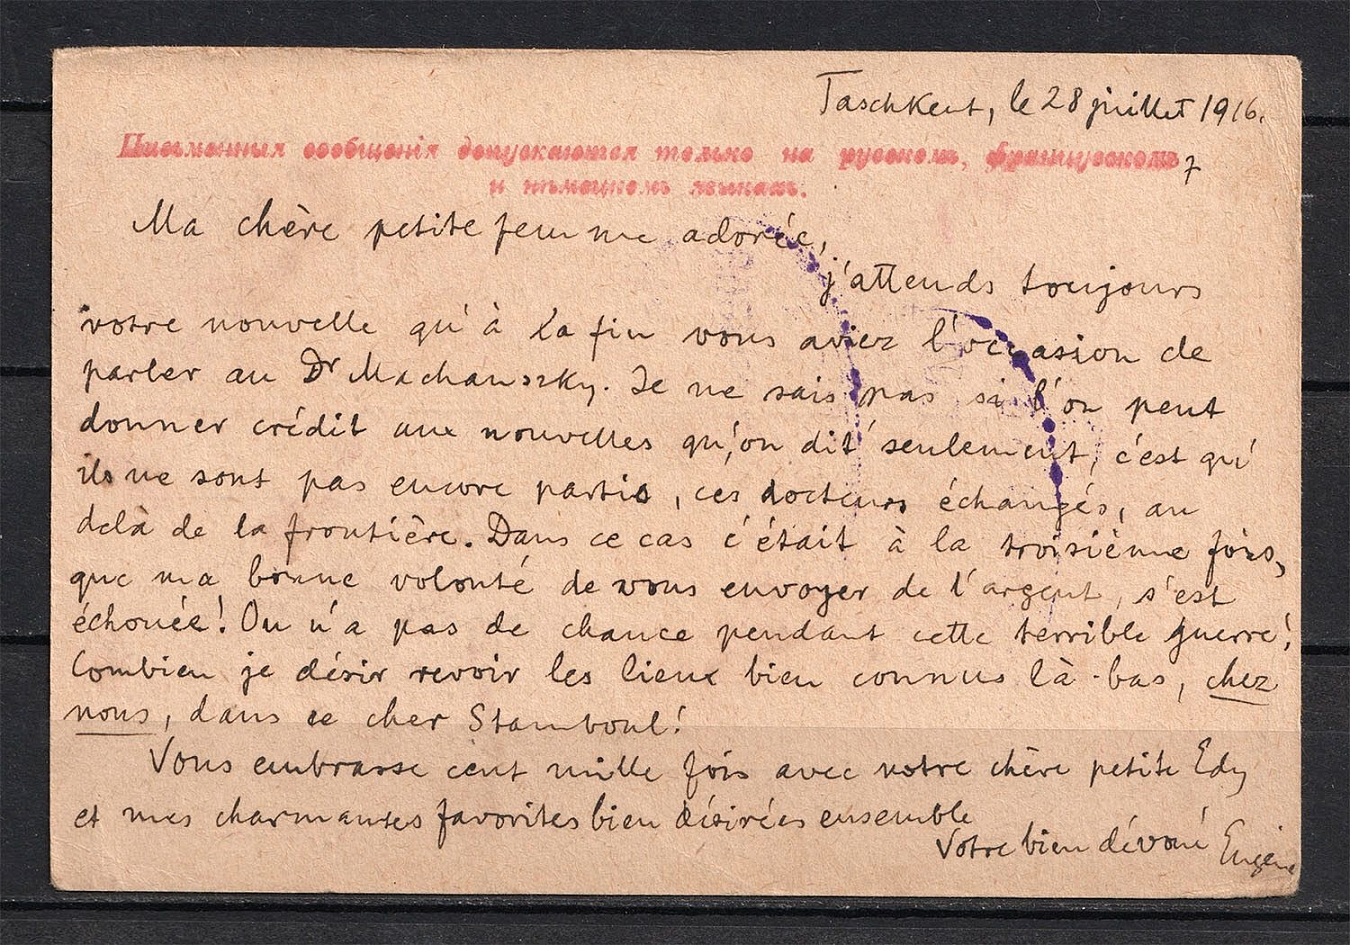 Taschkent, le 28 juillet 1916.
Письменныя сообщенія допускаются только на русскомъ, французскомъ
7
и нѣмецкомъ языкахъ.
Ma chère petite femme adorée,
j'attends toujours
votre nouvelle qu'à la fin vous aviez l'occasion de
parler au Dr Machanszky. Je ne sais pas si l'on peut
donner crédit aux nouvelles qu'on dit seulement, c'est qu'
ils ne sont pas encore partis, ces docteurs échangés, au
delà de la frontière. Dans ce cas c'était à la troisième fois,
que ma bonne volonté de vous envoyer de l'argent, s'est
échouée! On n'a pas de chance pendant cette terrible guerre!
Combien je désir revoir les lieux bien connus là-bas, chez
nous, dans ce cher Stamboul!
Vous embrasse cent mille fois avec notre chère petite Edy
et mes charmantes favorites bien désirées ensemble
Votre bien dévoué Eugène